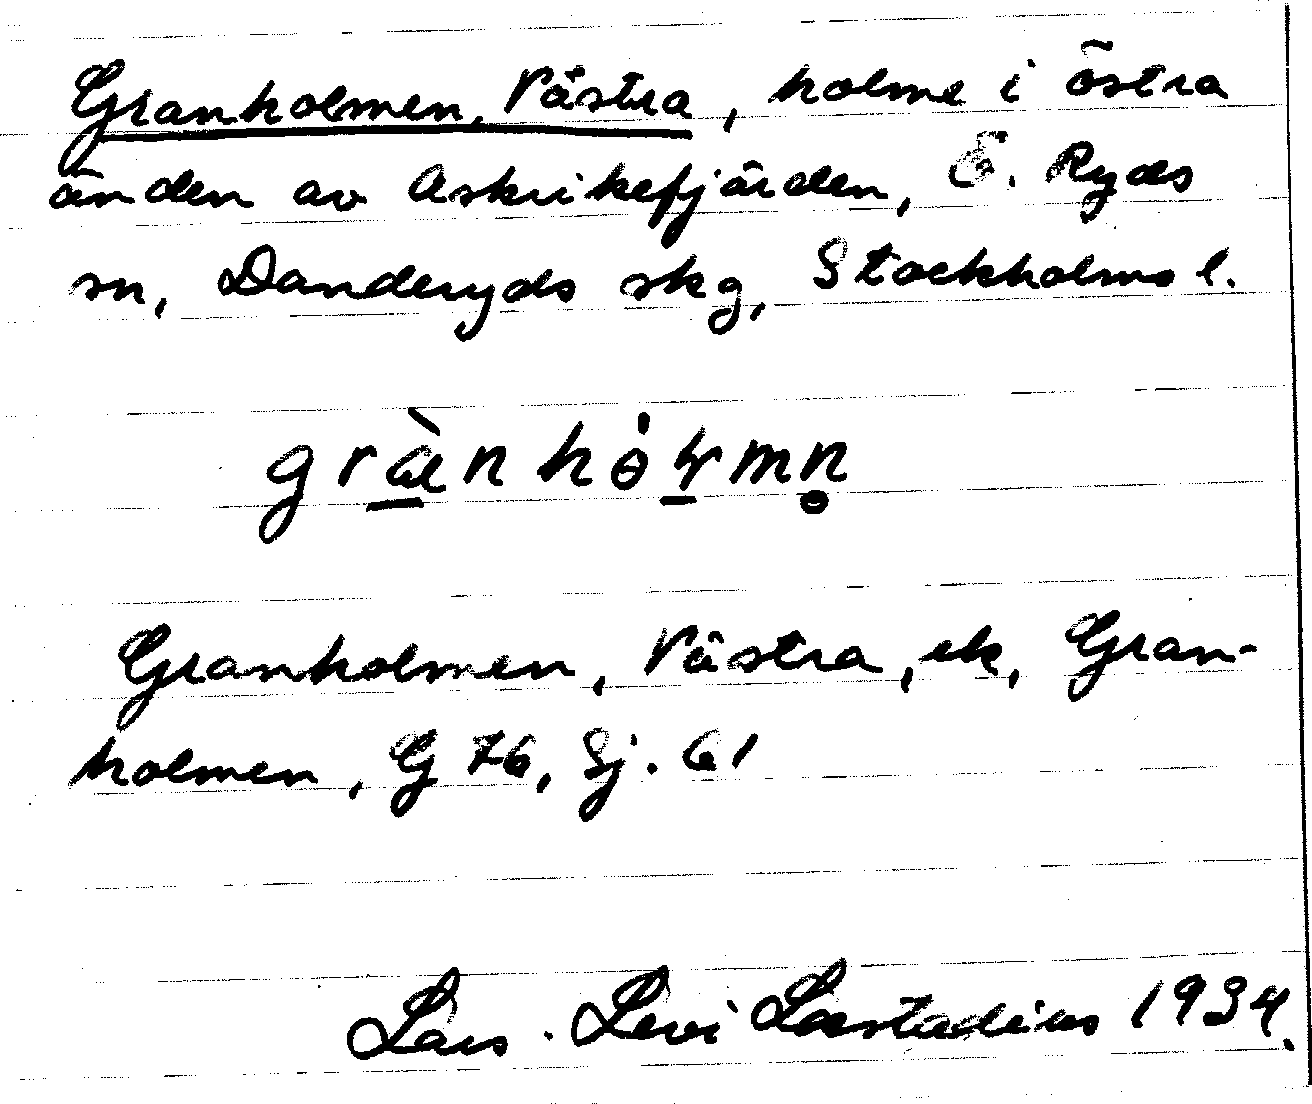 Granholmen, Västra, holme i östra
änden av Askrikefjärden, Ö. Ryds
sn, Danderyds skg, Stockholms l.
Granholmen, Västra, ek, Gran-
holmen, G 76, Sj. 61
Lars-Levi Læstadius 1934.